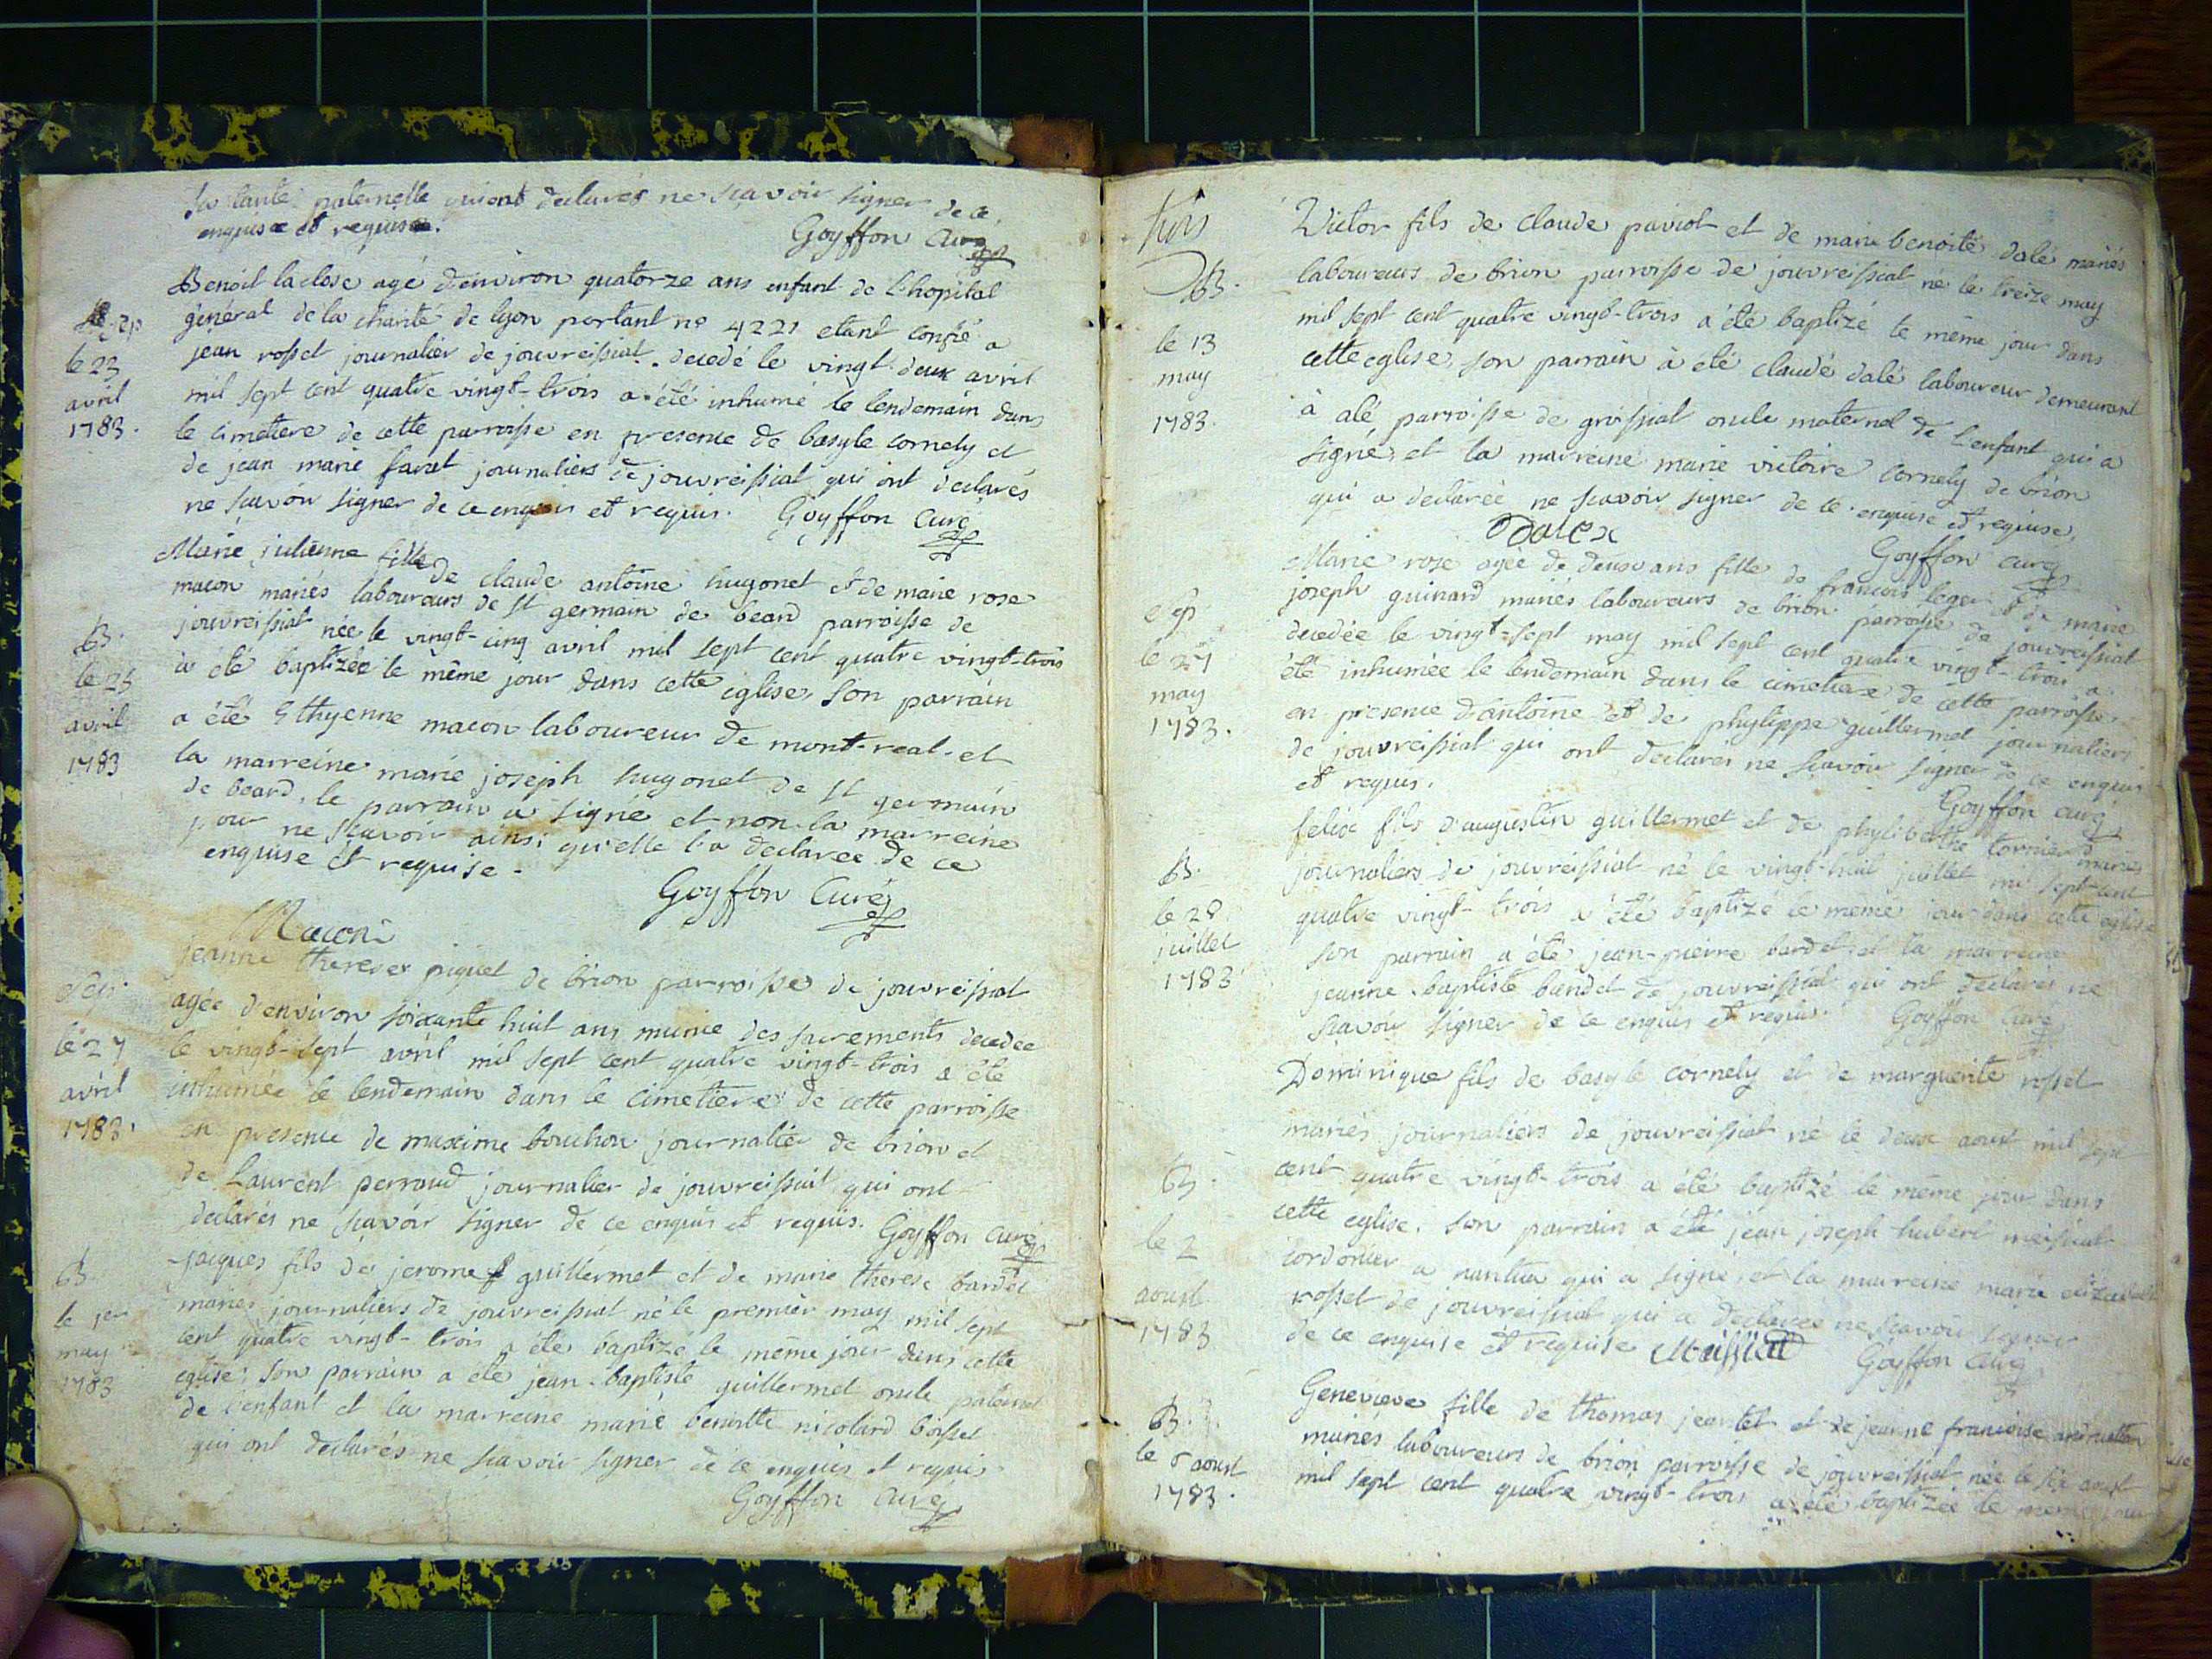 sa tante paternelle qui ont declarés ne scavoir signer de ce
enquise et requise.
Goyffon Curé
Benoit laclose agé d'environ quatorze ans enfant de L'hopital
général de la charité de lyon portant no 4221 etant confié a
jean rosset journalier de jouvreissiat. decedé le vingt deux avril
mil sept cent quatre vingt-trois a été inhumé le lendemain dans
le cimetiere de cette parroisse en presence de basyle cornely et
de jean marie favet journaliers de jouvreissiat qui ont declarés
ne scavoir signer de ce enquis et requis. Goyffon Curé
le 23
avril
1783.
Marie julienne fille de claude antoine hugonet et de marie rose
macon mariés laboureurs de st germain de beard parroisse de
jouvreissiat née le vingt-cinq avril mil sept cent quatre vingt-trois
a été baptizée le même jour dans cette eglise, son parrain
a été Ethyenne macon laboureur de mont-real et
la marreine marie joseph hugonet de st germain
de beard, le parrain a signé et non la marreine
pour ne scavoir ainsi qu'elle l'a declaree de ce
enquise et requise.
Goyffon Curé
Macon
B.
le 25
avril
1783
jeanne therese piquet de brion parroisse de jouvreissiat
agée d'environ soixante huit ans munie des sacrements decedée
le vingt-sept avril mil sept cent quatre vingt-trois a été
inhumée le lendemain dans le cimetiere de cette parroisse
en presence de maxime bouchon journalier de brion et
de Laurent perraud journalier de jouvreissiat qui ont
declarés ne scavoir signer de ce enquis et requis. Goyffon Curé
Sep.
le 27
avril
1783.
jacques fils de jerome guillermet et de marie therese bardet
mariés journaliers de jouvreissiat né le premier may mil sept
cent quatre vingt-trois a été baptizé le même jour dans cette
eglise; son parrain a été jean-baptiste guillermet oncle paternel
de l'enfant et la marreine marie benoitte nicolard boisset
qui ont declarés ne scavoir signer de ce enquis et requis
Goyffon Curé
B.
le 1er
may
1783
Victor fils de claude paviot et de marie benoite dalé mariés
laboureurs de brion parroisse de jouvreissiat né le treize may
mil sept cent quatre vingt-trois a été baptizé le même jour dans
cette eglise, son parrain à été claude dalé laboureur demeurant
à alé parroisse de groissiat oncle maternel de L'enfant qui a
signé, et la marreine marie victoire cornely de brion
qui a declarée ne scavoir signer de ce enquise et requise,
Dalex
Goyffon Curé
B.
le 13
may
1783.
Marie rose agée de deux ans fille de francois leger et de marie
joseph guinard mariés laboureurs de brion parroisse de jouvreissiat
decedée le vingt-sept may mil sept cent quatre vingt-trois a
été inhumée le lendemain dans le cimetiere de cette parroisse
en presence d'antoine et de phylippe guillermet journaliers
de jouvreissiat qui ont declarés ne scavoir signer de ce enquis
et requis.
Goyffon Curé
Sep.
le 27
may
1783.
felix fils d'augustin guillermet et de phyliberthe tornier mariés
journaliers de jouvreissiat né le vingt-huit juillet mil sept-cent
quatre vingt-trois a été baptizé le meme jour dans cette eglise
son parrain a été jean-pierre bardet et la marreine
jeanne-baptiste bandet de jouvreissiat qui ont declarés ne
scavoir signer de ce enquis et requis. Goyffon Curé
B.
le 28
juillet
1783
Dominique fils de basyle cornely et de marguerite rosset
mariés journaliers de jouvreissiat né le deux aoust mil sept
cent quatre vingt-trois a été baptizé le même jour dans
cette eglise. son parrain a été jean joseph hubert meissiat
cordonier a nantua qui a signé, et la marreine marie elizabeth
rosset de jouvreissiat qui a declaree ne scavoir signer
de ce enquise et requise Meissiat
Goyffon Curé
B.
le 2
aoust
1783
Genevieve fille de thomas jeantet et de jeanne francoise
mariés laboureurs de brion parroisse de jouvreissiat née le six aoust
mil sept cent quatre vingt-trois a été baptizée le meme jour
B.
le 6 aoust
1783.